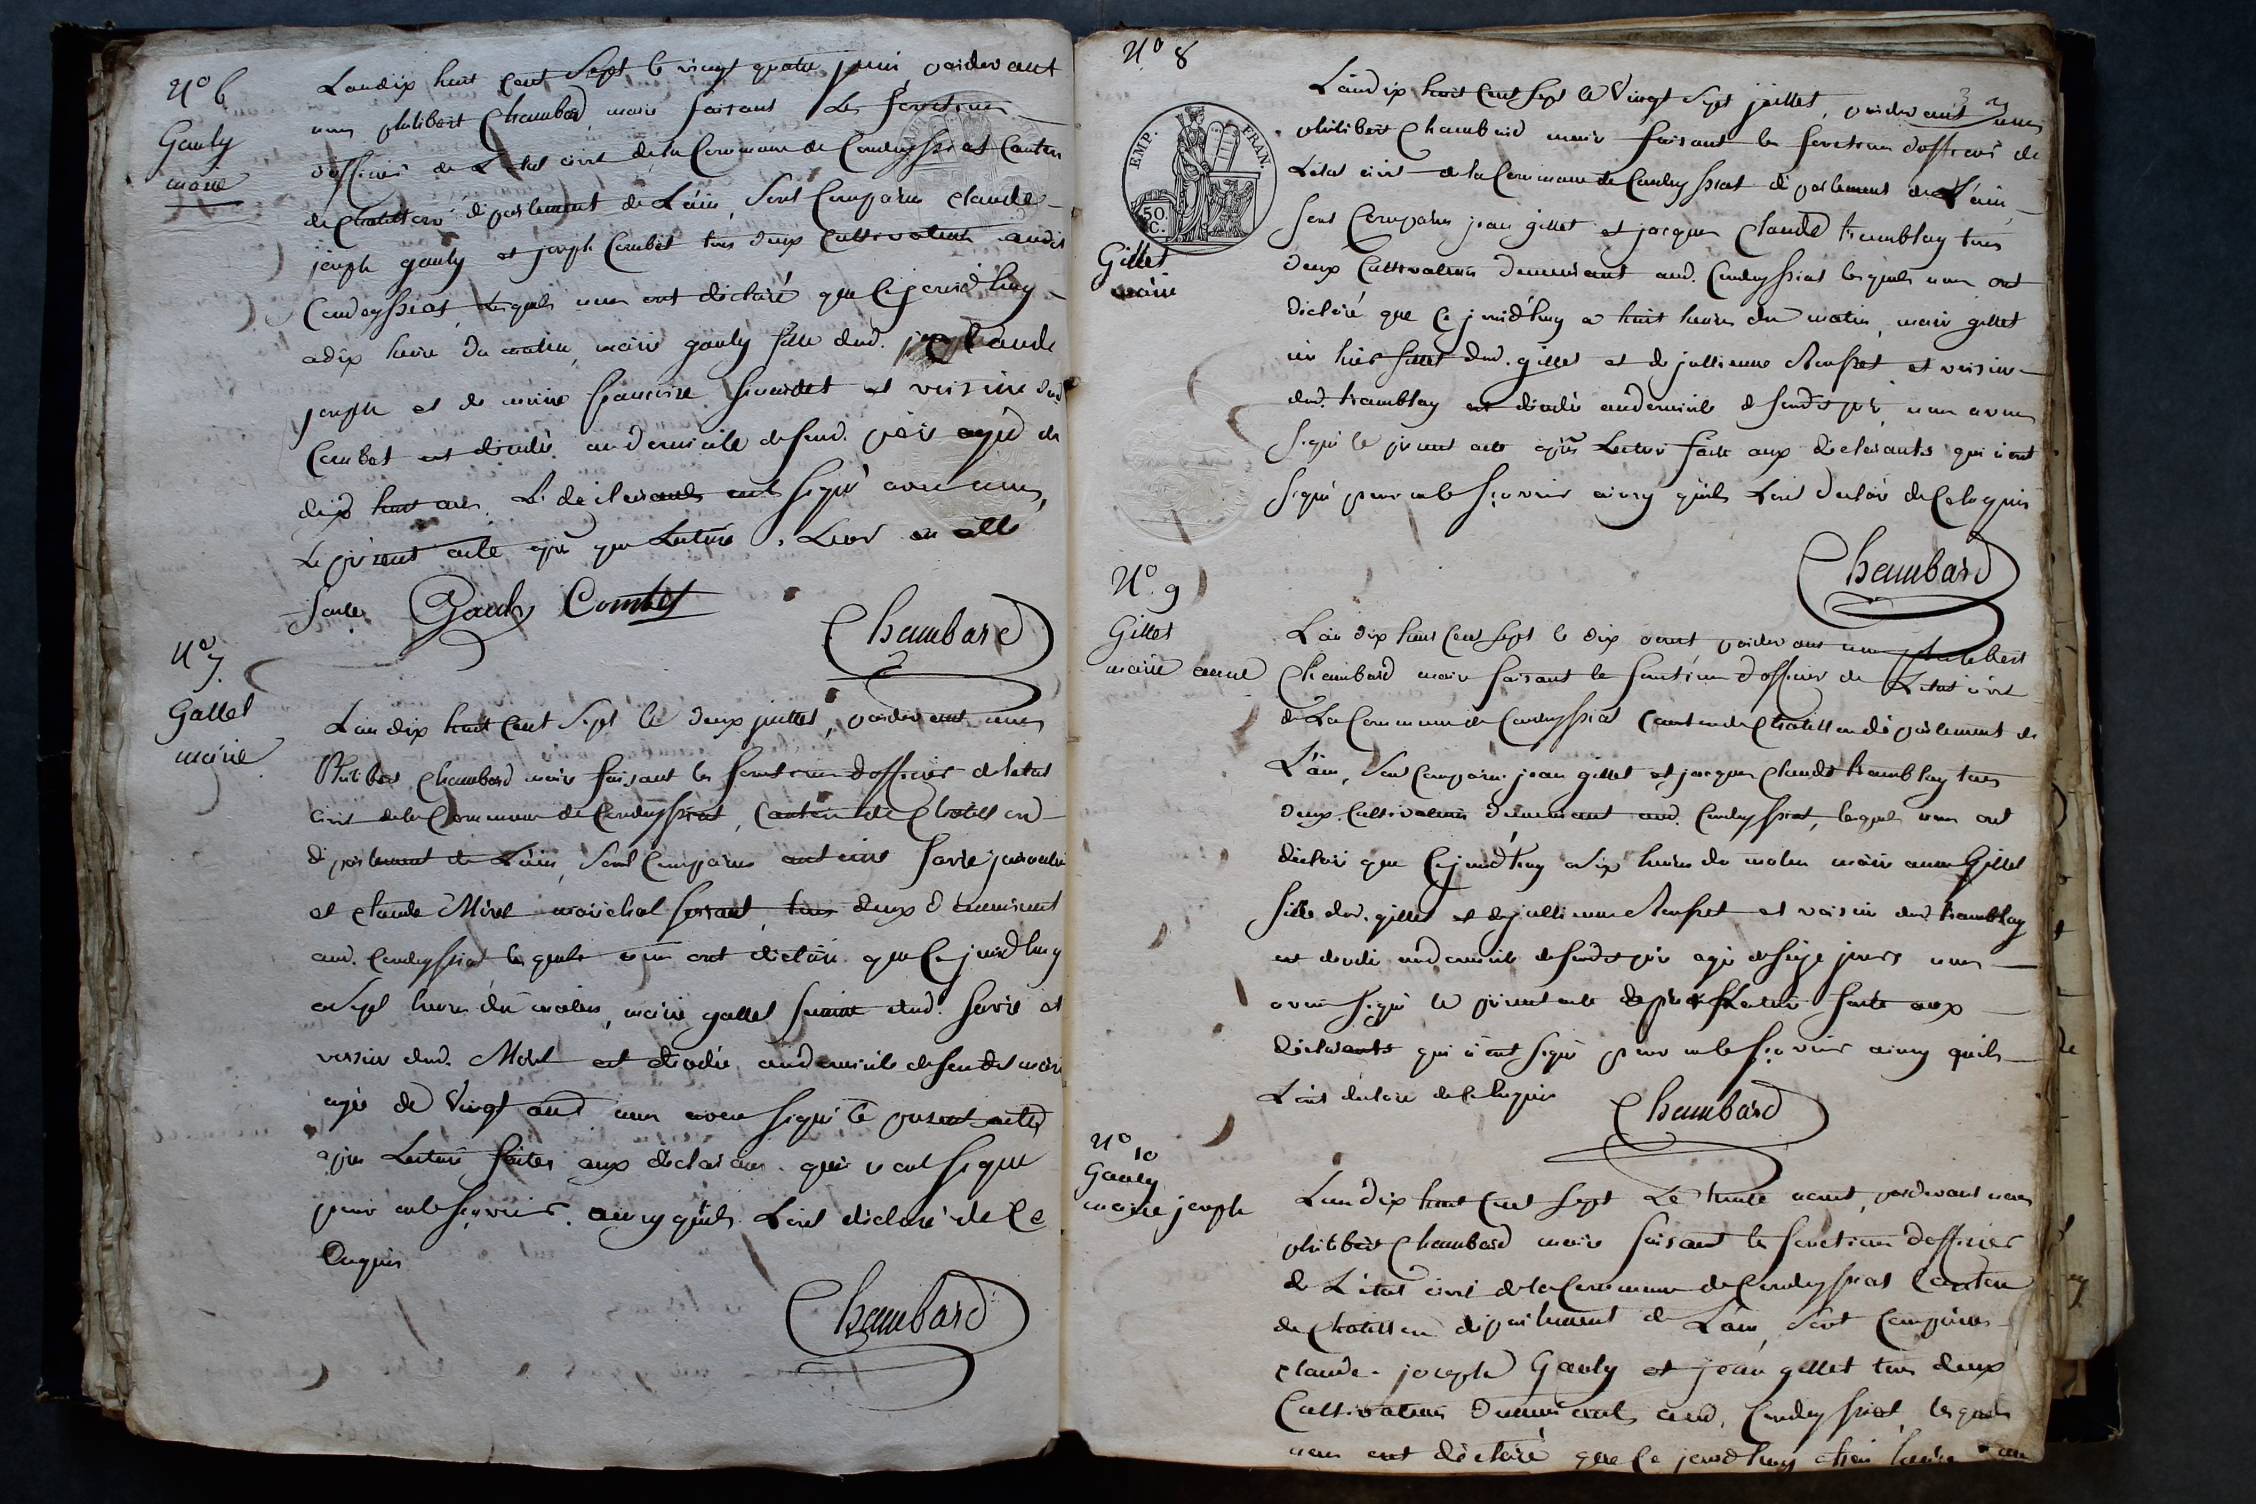 N° 6
Gauly
marie
Landix huit cent sept le vingt quatre juin, pardevant
nous philibert Chambard, maire faisant les fonctions
dofficier de Letat civil de la Commune de Condeyssiat Canton
de Chatillon département de Lain, sont Comparus claude
joseph gauly et joseph Combet tous deux Cultivateurs audit
Condeyssiat lesquels nous ont déclaré que cejourdhuy
adix heure du matin, marie gauly fille dud. claude
joseph et de marie françoise et voisine dud.
Combet est décédé audomicile desond. père agé de
dix huit ans. Les déclarants ont signé avec nous,
Le présent acte après que Lecture Leur en allé
faite Gauly Combet
Chambard
N° 7.
Gallet
marie
Lan dix huit cent sept le deux juillet, pardevant nous
Philibert Chambard maire faisant les fonctions dofficier de letat
civil de la Commune de Condeyssiat, Canton de Chatillon
département de Lain, sont Comparus antoine
et claude Morel maréchal tous deux demeurant
aud. Condeyssiat lesquels nous ont déclaré que cejourdhuy
a sept heures du matin, marie gallet femme dud. et
voisine dud. Morel est décédée audomicile desondit mari
agée de vingt ans nous avons signé le présent acte
après Lecture faites aux déclarans qui nont signé
pour nele sçavoir ainsy quils Lont déclaré de ce
Enquis
Chambard
N° 8
EMP. FRAN.
50. C.
Gillet
marie
Landix huit cent sept le vingt sept juillet, pardevant nous
philibert Chambard maire faisant les fonctions dofficier de
Letat civil de la Commune de Condeyssiat département de Lain,
sont Comparus jean gillet et jacques Claude tramblay tous
deux Cultivateurs demeurant aud. Condeyssiat lesquels nous ont
déclaré que cejourdhuy a huit heures du matin, marie gillet
fille dud. gillet et de jullienne et voisine
dud. tramblay est décédée audomicile desondit père nous avons
signé le présent acte après Lecture faite aux déclarants qui nont
signé pour nele sçavoir ainsy quils Lont déclaré de Ce enquis
Chambard
N° 9
Gillet
marie anne
Lan dix huit cent sept le dix aout, pardevant nous philibert
Chambard maire faisant les fonctions dofficier de Letat civil
de La Commune de Condeyssiat Canton de Chatillon département de
Lain, sont Comparus jean gillet et jacques Claude tramblay tous
deux Cultivateurs demeurant aud. Condeyssiat, lesquels nous ont
déclaré que cejourdhuy a six heures du matin marie anne Gillet
fille dud. gillet et de jullienne et voisine dud. tramblay
est décédée audomicile desondit père agé de seize jours nous
avons signé le présent acte après Lecture faite aux
déclarants qui nont signé pour nele sçavoir ainsy quils
Lont déclaré de Ce enquis
Chambard
N° 10
Gauly
marie joseph
Landix huit cent sept Le trente aout, pardevant nous
philibert Chambard maire faisant les fonctions dofficier
de Létat civil de la Commune de Condeyssiat Canton
de Chatillon département de Lain, sont Comparus
claude joseph Gauly et jean gillet tous deux
Cultivateurs demeurants aud. Condeyssiat, lesquels
nous ont déclaré que ce jourdhuy heures